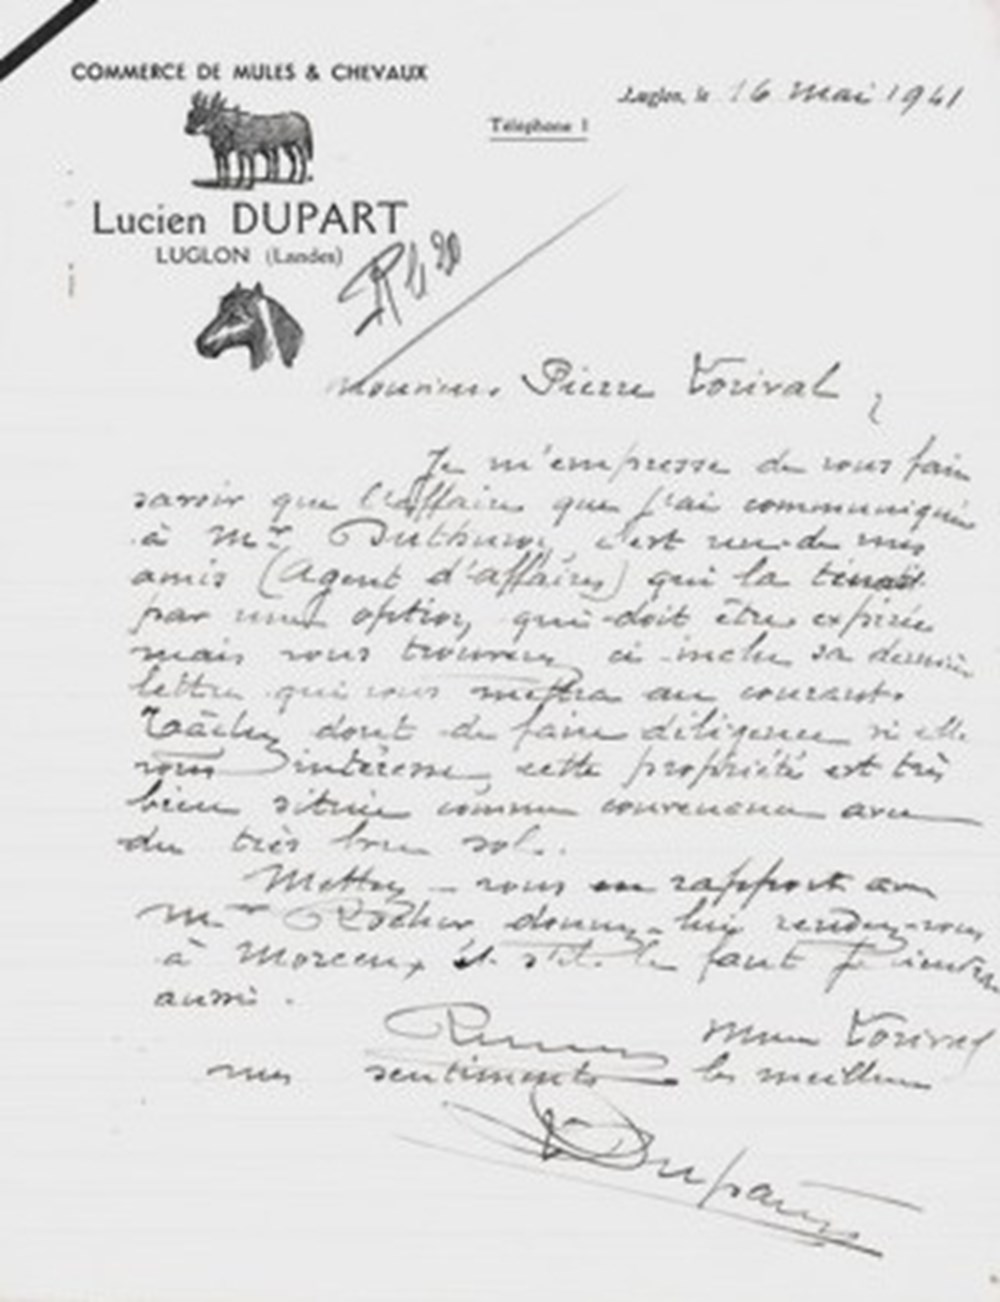 COMMERCE DE MULES & CHEVAUX
Luglon, le 16 mai 1941
Téléphone 1
Lucien DUPART
LUGLON (Landes)
Monsieur Pierre Torival,
Je m'empresse de vous faire
savoir que l'affaire que j'ai communiquée
à Mr c'est un de mes
amis (Agent d'affaires) qui la tenait
par une option, qui doit être expirée
mais vous trouverez ci-inclu sa dernière
lettre qui vous mettra au courant.
Tâchez dont de faire diligence si elle
vous intéresse, cette propriété est très
bien située comme convenance avec
du très bon sol.
Mettez-vous en rapport avec
Mr donnez-lui rendez-vous
à Morcenx, et s'il le faut je viendrai
aussi.
Recevez Torival
mes sentiments les meilleurs
Dupart